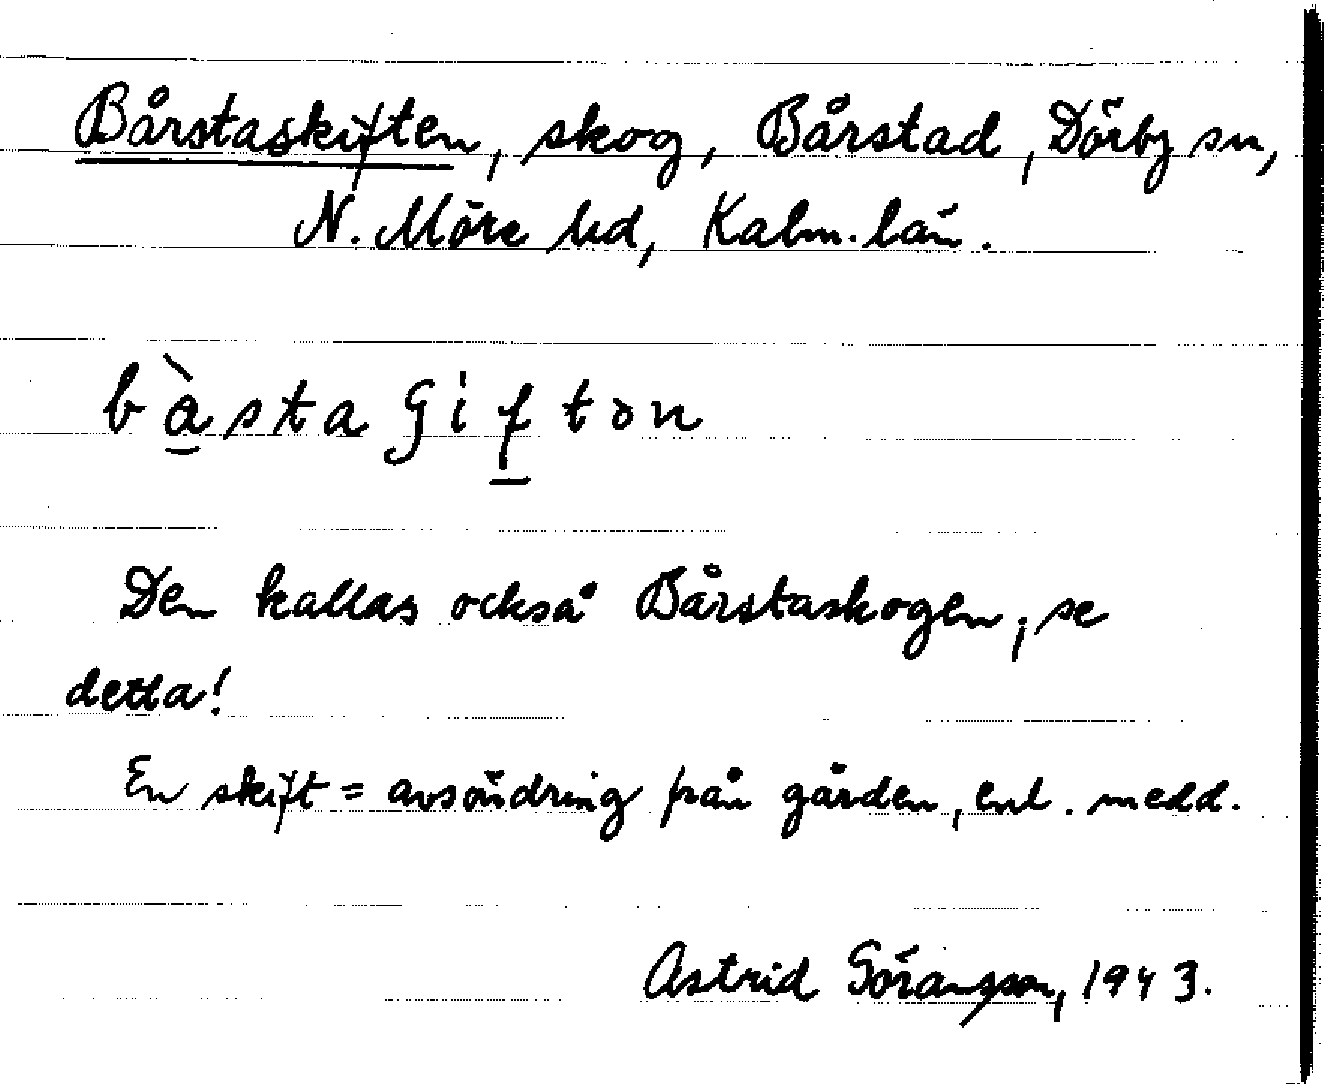 Bårstaskiften, skog, Bårstad, Dörby sn,
N. Möre hd, Kalm. län.
bàstaʃiftən
Den kallas också Bårstaskogen, se
detta!
En skift = avsöndring från gården, enl. medd.
Astrid Göransson, 1943.